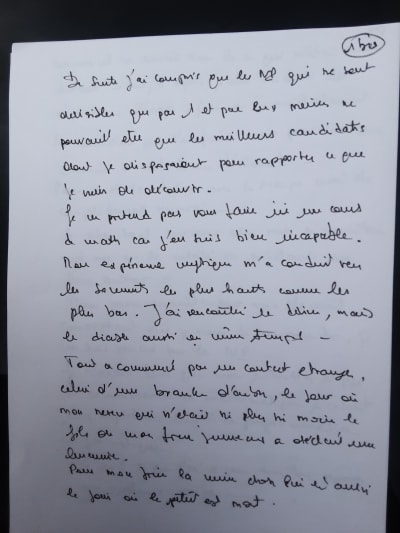 1 bis
De suite j'ai compris que les NP qui ne sont
divisibles que par 1 et par eux mêmes ne
pouvait être que les meilleurs candidats
dont je disposaient pour rapporter ce que
je viens de découvrir.
Je ne prétend pas vous faire ici un cours
de math car j'en suis bien incapable.
Mon expérience mystique m'a conduit vers
les sommets les plus hauts comme les
plus bas. J'ai rencontré le divin, mais
le diable aussi en même temps -
Tout a commencé par un contact étrange,
celui d'une branche d'arbre, le jour où
mon neveu qui n'était ni plus ni moins le
fils de mon frère jumeau a déclaré une
leucémie.
Pour mon frère la même chose lui aussi
le jour où le petit est mort.